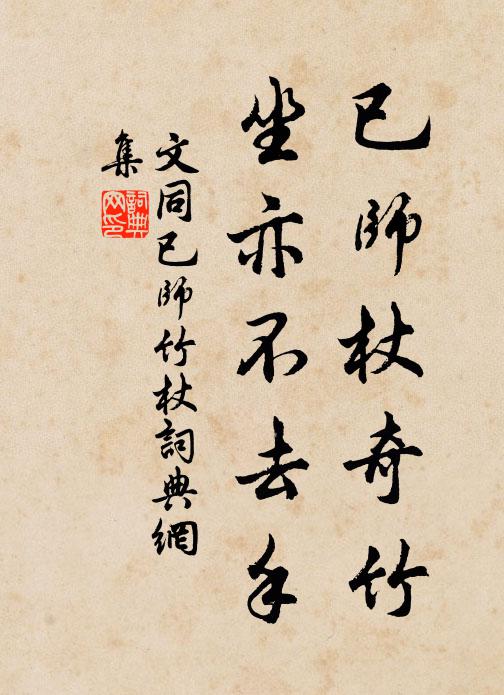 已師杖奇竹
坐亦不去手
文同已師竹杖詞典網
集
詞典
网印